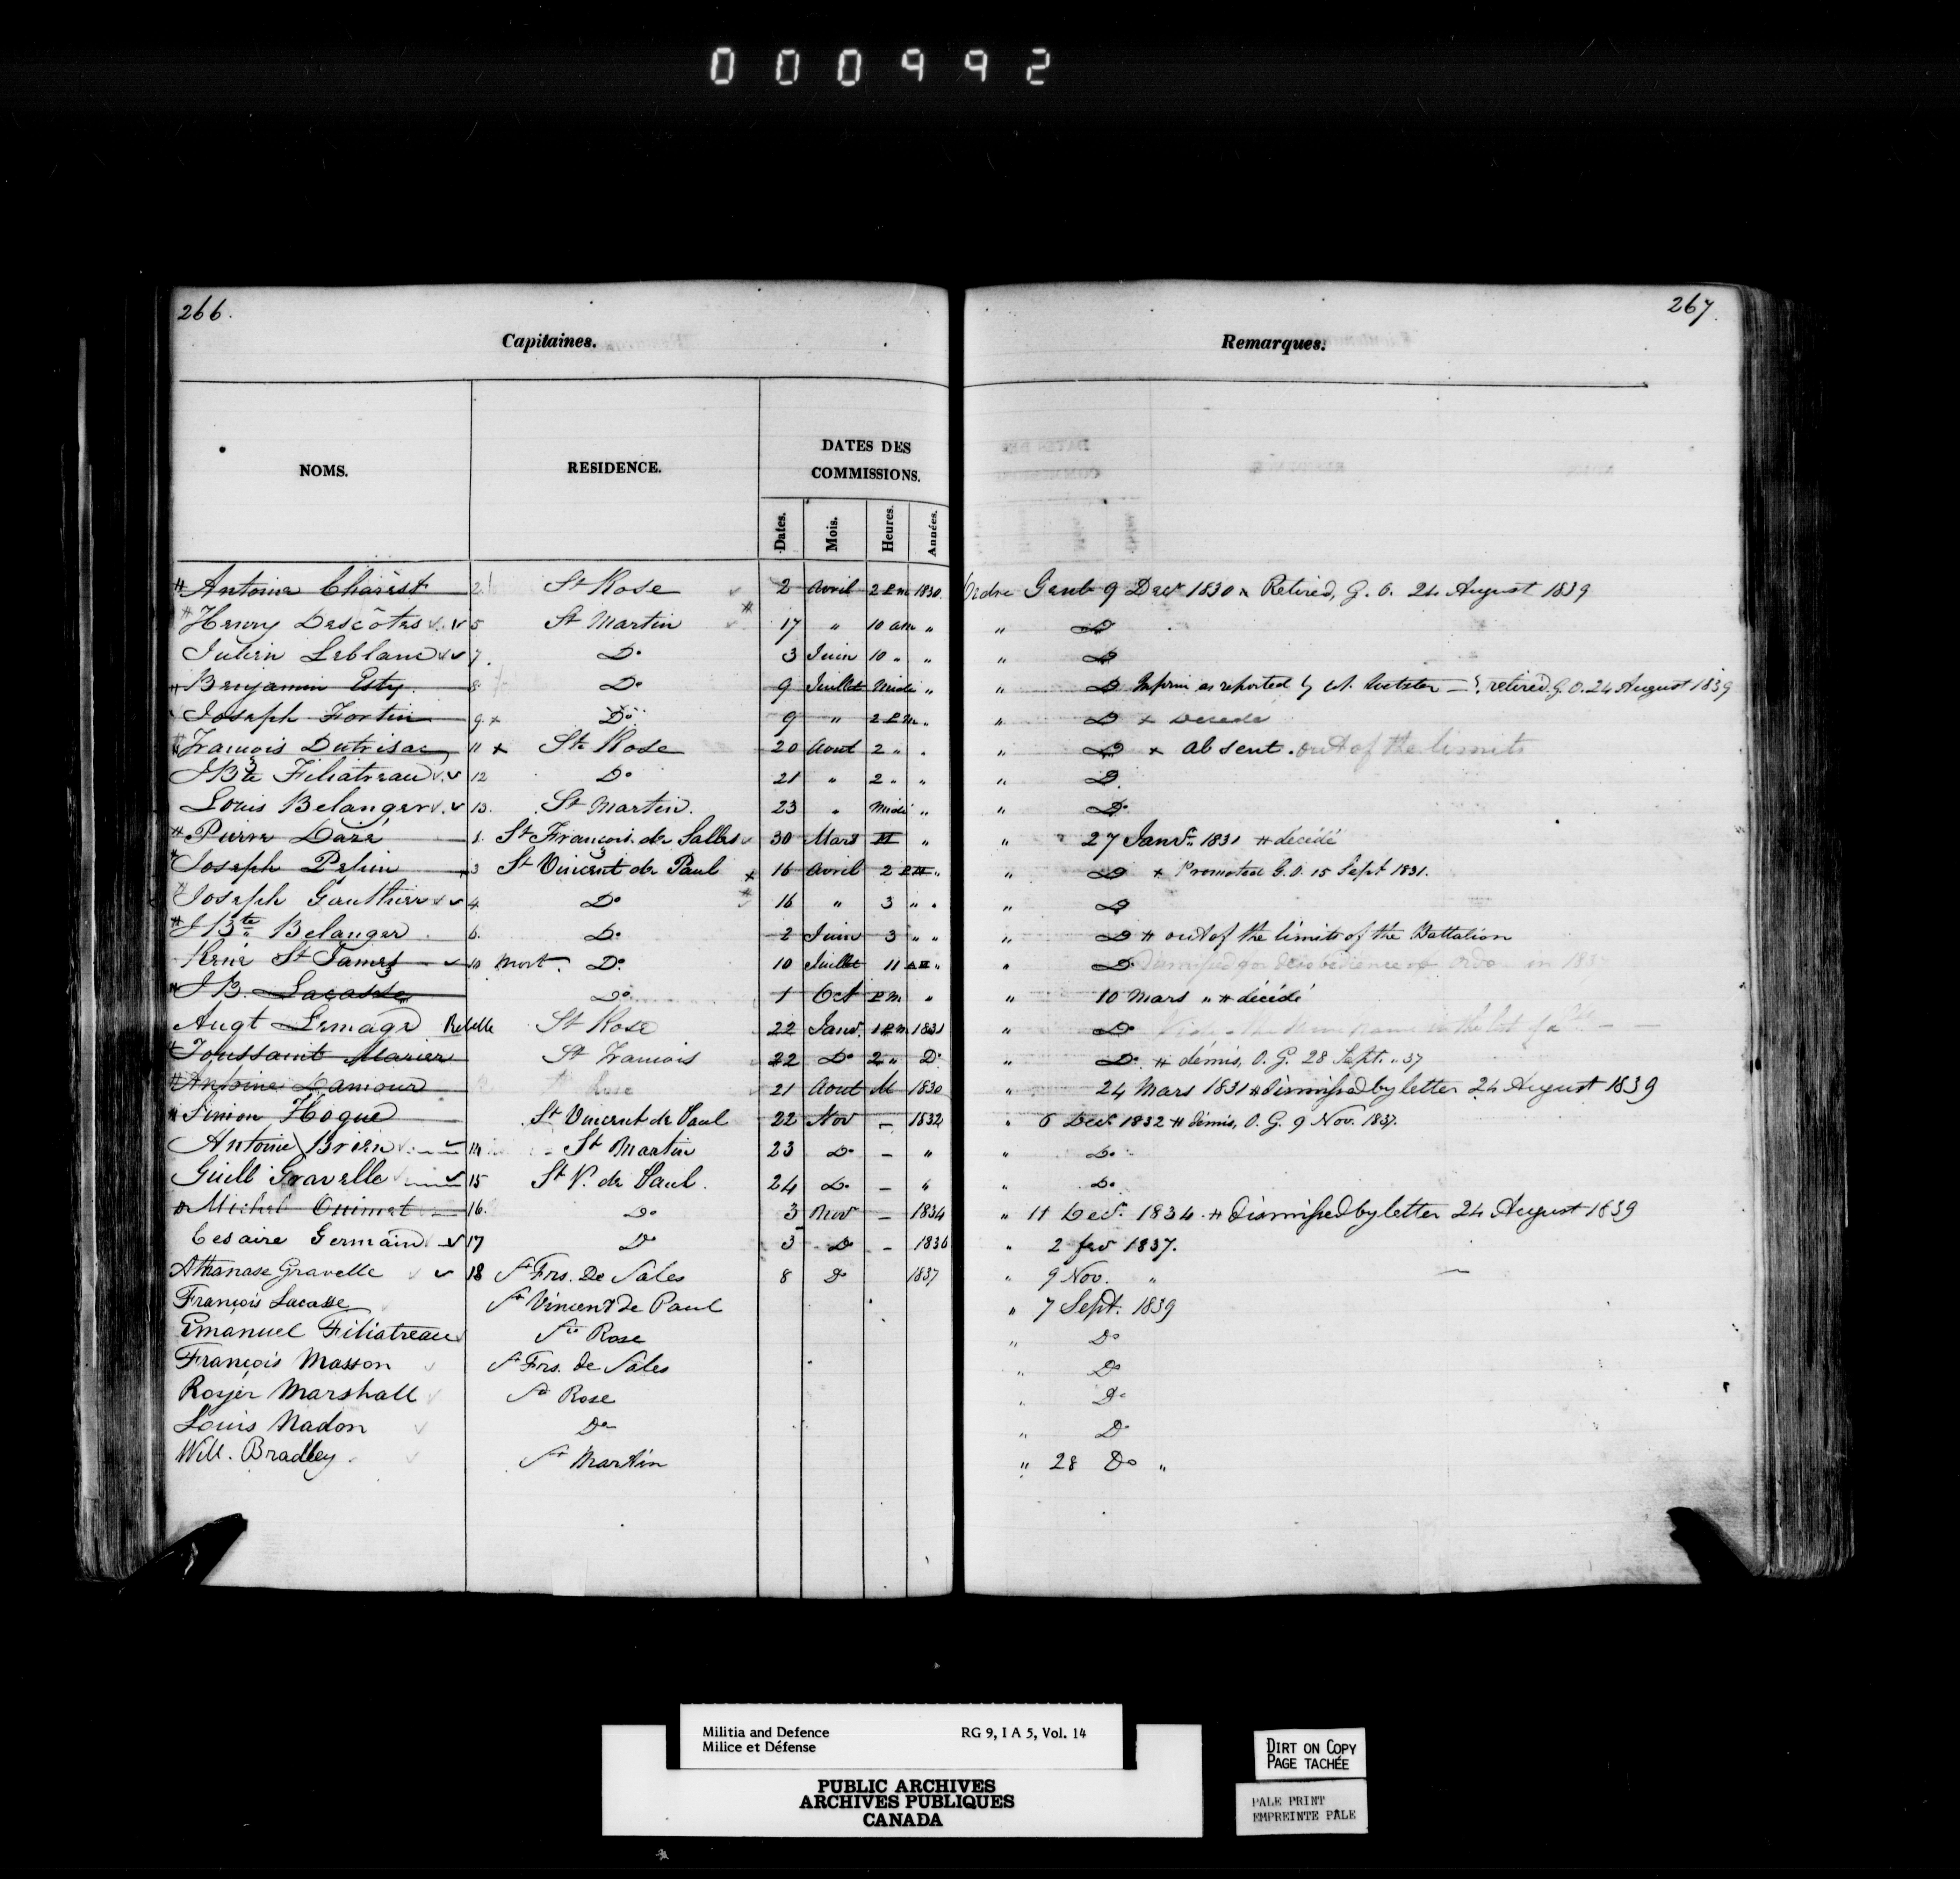 000992
266.
267
Capitaines.
Remarques.
NOMS.
RESIDENCE.
DATES DES
COMMISSIONS.
Dates.
Mois.
Heures.
Années.
# Antoine Charest 2 St Rose 2 Avril 2 P.M 1830 Ordre Genl 9 Decr 1830 x Retired, G. O. 24 August 1839
# Henry Descôtes 5 St Martin # 17 " 10 am " " Do
Julien Leblanc 7. Do 3 Juin 10 " " " Do
# Benjamin Esty. 8 Do 9 Juillet Midi " " Do as reported by retired G. O. 24 August 1839
Joseph Fortin 9. x Do 9 " 2 P.M " " Do x Decede
# François Dutrisac 11 x Ste Rose 20 Aout 2 " " " Do x absent. out of the limits
J Bte Filiatreau 12 Do 21 " 2 " " " Do
Louis Belanger 13. St Martin. 23 " Midi " " Do
# Pierre Dazé 1. St François de Salles 30 Mars M " " 27 Janvr 1831 # décédé
# Joseph Pepin x 3 St Vincent de Paul x 16 Avril 2 PM " " Do x Promoted G. O. 15 Sept 1831.
# Joseph Gauthier 4. Do # 16 " 3 " " " Do
# J Bte Belanger 6. Do 2 Juin 3 " " " Do # out of the limits of the Battalion
Réné St James 10 Mort. Do 10 Juillet 11 AM " " Do Dismissed for disobedience of in 183
# J B. Lacasse Do 1 Oct P M " " 10 Mars " # décédé
Augt Lemage Rebelle St Rose 22 Janv. 1 P.M 1831 " Do
# Toussaint Marier St Francois 22 Do 2 " Do " Do # démis, O. G. 28 Sept. " 37
# Antoine Lamour Rose 21 Aout M 1830 " 24 Mars 1831 # dismissed by letter 24 August 1839
# Simon Hogue St Vincent de Paul 22 Nov - 1832 " 6 Decr 1832 # démis, O. G. 9 Nov. 1837.
Antoine Brien 14 St Martin 23 Do - " " Do
Guill Gravelle 15 St V. de Paul. 24 Do - " " Do
Michel Ouimet 16. Do 3 Nov - 1834 " 11 Decr. 1834 # dismissed by letter 24 August 1839
Cesaire Germain 17 Do 3 Do - 1836 " 2 fev 1837.
Athanase Gravelle 18 St Frs. De Sales 8 Do 1837 " 9 Nov. "
François Lacasse St Vincent de Paul " 7 Sept. 1839
Emanuel Filiatreau Ste Rose " Do
François Masson St Frs. de Sales " Do
Rojer Marshall St Rose " Do
Louis Nadon Do " Do
Will. Bradley St Martin " 28 Do "
Militia and Defence
Milice et Défense
RG 9, I A 5, Vol. 14
PUBLIC ARCHIVES
ARCHIVES PUBLIQUES
CANADA
DIRT ON COPY
PAGE TACHÉE
PALE PRINT
EMPREINTE PALE